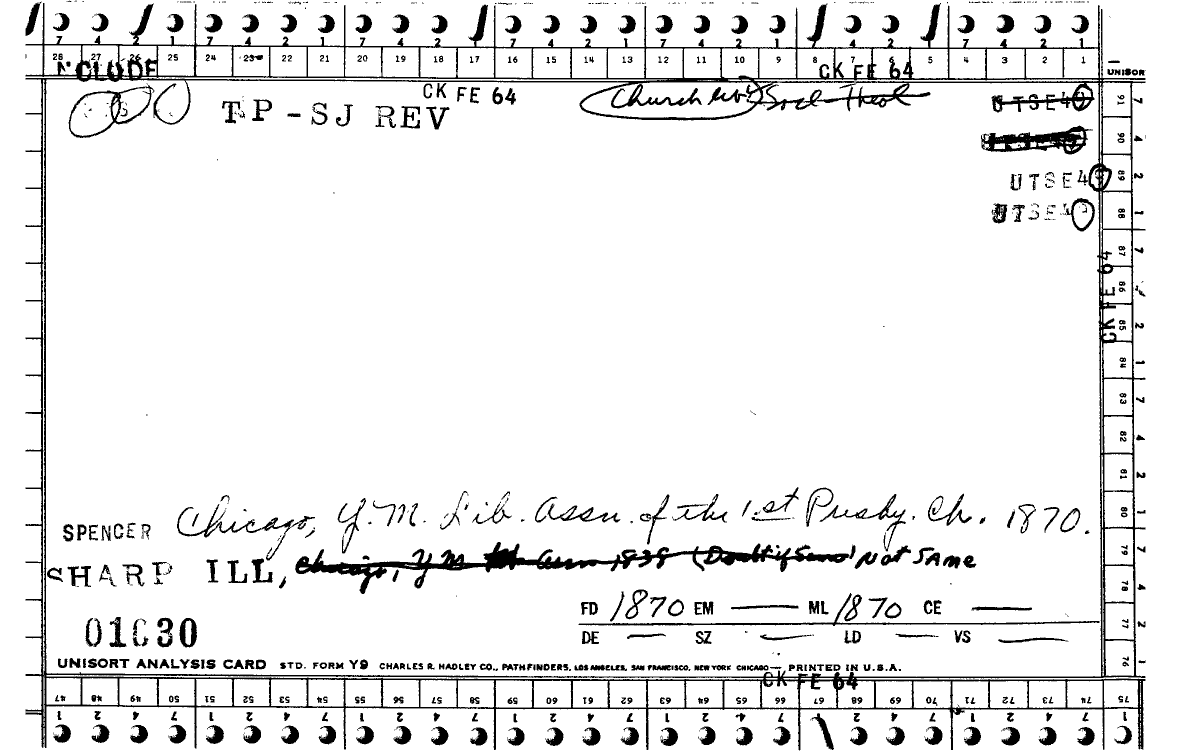 7 4 2 1 7 4 2 1 7 4 2 1 7 4 2 1 7 4 2 1 7 4 2 1 7 4 2 1
28 27 26 25 24 23 22 21 20 19 18 17 16 15 14 13 12 11 10 9 8 7 6 5 4 3 2 1
NCLUDE CK FE 64 UNISOR
CK FE 64
TP - SJ REV
Church Soc Theol
UTSE4
UTSE4
UTSE4
91 7
90 4
89 2
88 1
87 7
86
85 2
84 1
83 7
82 4
81 2
80 1
79 7
78 4
77 2
76 1
CK FE 64
SPENCER Chicago, Y. M. Lib. Assn. of the 1st Presby. Ch. 1870.
SHARP ILL, Chicago, Y M Assn 1838 Not SAME
FD 1870 EM — ML 1870 CE —
DE — SZ — LD — VS —
01630
UNISORT ANALYSIS CARD STD. FORM Y9 CHARLES R. HADLEY CO., PATHFINDERS, LOS ANGELES, SAN FRANCISCO, NEW YORK CHICAGO — PRINTED IN U.S.A.
CK FE 64
47 48 49 50 51 52 53 54 55 56 57 58 59 60 61 62 63 64 65 66 67 68 69 70 71 72 73 74 75
1 2 4 7 1 2 4 7 1 2 4 7 1 2 4 7 1 2 4 7 1 2 4 7 1 2 4 7 1